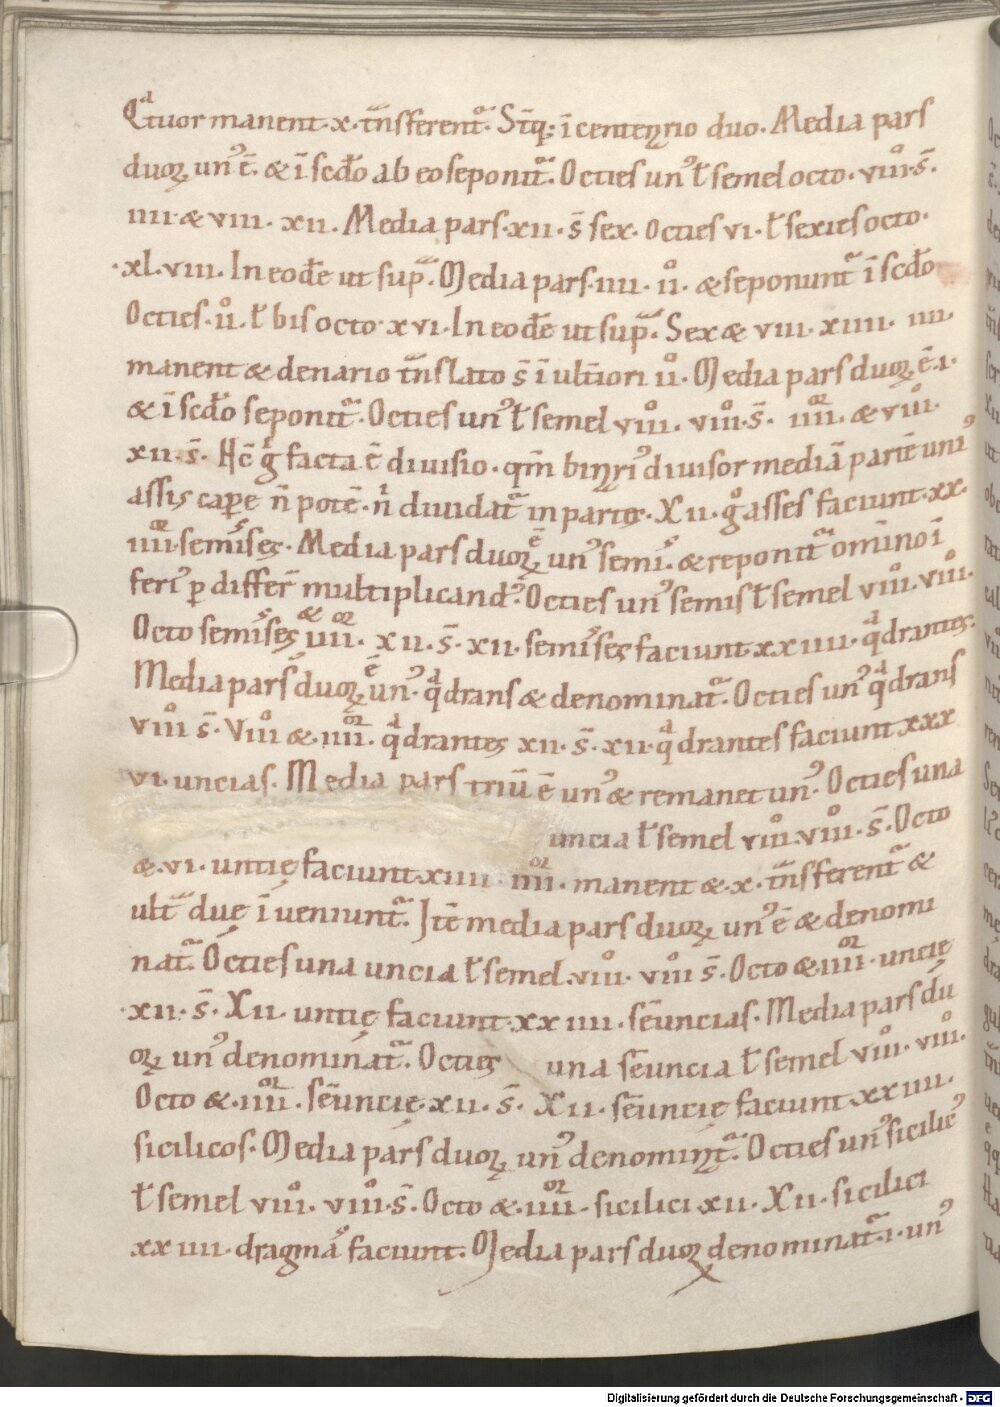 Qͣtuor manent·x·t̄nsferent᷑. St̄q; ī centen̨rio duo. Media pars
duoꝝ un᾽ ē. & ī scd̄o ab eo seponit᷑. Octies un᾽ ł semel octo·viiiͦ·s̄.
iiii·& viii· xii. Media pars·xii·s̄ sex. Octies vi·ł sexies octo·
·xl·viii. In eod̄e ut sup̄. Media pars·iiii·iiͦ· & seponunt᷑ ī scd̄o
Octies·iiͦ·ł bis octo·xvi·In eod̄e ut sup̄. Sex & viii·xiiii· iiii·
manent & denario t̄nslato s̄ ī ult̄iori iiͦ. Media pars duoꝝ ē·i·
& ī scd̄o seponit᷑. Octies un᾽ ł semel viiiͦ. viiiͦ·s̄. iiii. & viiiͦ·
xii·s̄. Hc̄ gͥ facta ē diuisio·qm̄ bin̨ri᾽ diuisor mediā partē uni᾽
assis cap̄e n̄ potē·nͥ diuidat᷑ in partes. Xii·gͦ asses faciunt·xx·
iiii·semisses. Media pars duoꝝ ē un᾽ semis. & reponit᷑ omīno ī
feri᾽ ꝑ differ̄ multiplicand᾽. Octies un᾽ semis ł semel viiiͦ. viiiͦ.
Octo semisses & iiii. xii·s̄·xii·semisses faciunt xxiiii·qͣdrantes.
Media pars duoꝝ ē un᾽ qͣdrans & denominat᷑. Octies un᾽ qͣdrans
viiiͦ s̄. Viiiͦ &·iiii·qͣdrantes xii·s̄·xii·qͣdrantes faciunt xxx
vi·uncias. Media pars triū ē un᾽ & remanet un᾽. Octies una
uncia ł semel viiiͦ·viiiͦ·s̄·Octo
&·vi·untię faciunt xiiii·iiii·manent &·x·t̄nsferent᷑ &
ult̄ duę ī ueniunt᷑. Itē media pars duoꝝ un᾽ ē & denomi
nat᷑. Octies una uncia ł semel·viiiͦ· viiiͦ s̄. Octo &·iiii·uncię
·xii·s̄. Xii·untię faciunt·xxiiii·sēuncias. Media pars du
oꝝ un᾽ denominat᷑. Octies una sēuncia ł semel viiiͦ·viiiͦ.
Octo &·iiii·sēuncię xii·s̄· Xii·sēuncię faciunt xxiiii·
sicilicos. Media pars duoꝝ un᾽ denomin̨t᷑. Octies un᾽ sicilic᾽
ł semel viiiͦ. viiiͦ·s̄. Octo &·iiii·sicilici xii·Xii·sicilici
xxiiii·dragmas faciunt. Media pars duoꝝ denominat᷑·i·un᾽
Digitalisierung gefördert durch die Deutsche Forschungsgemeinschaft - DFG